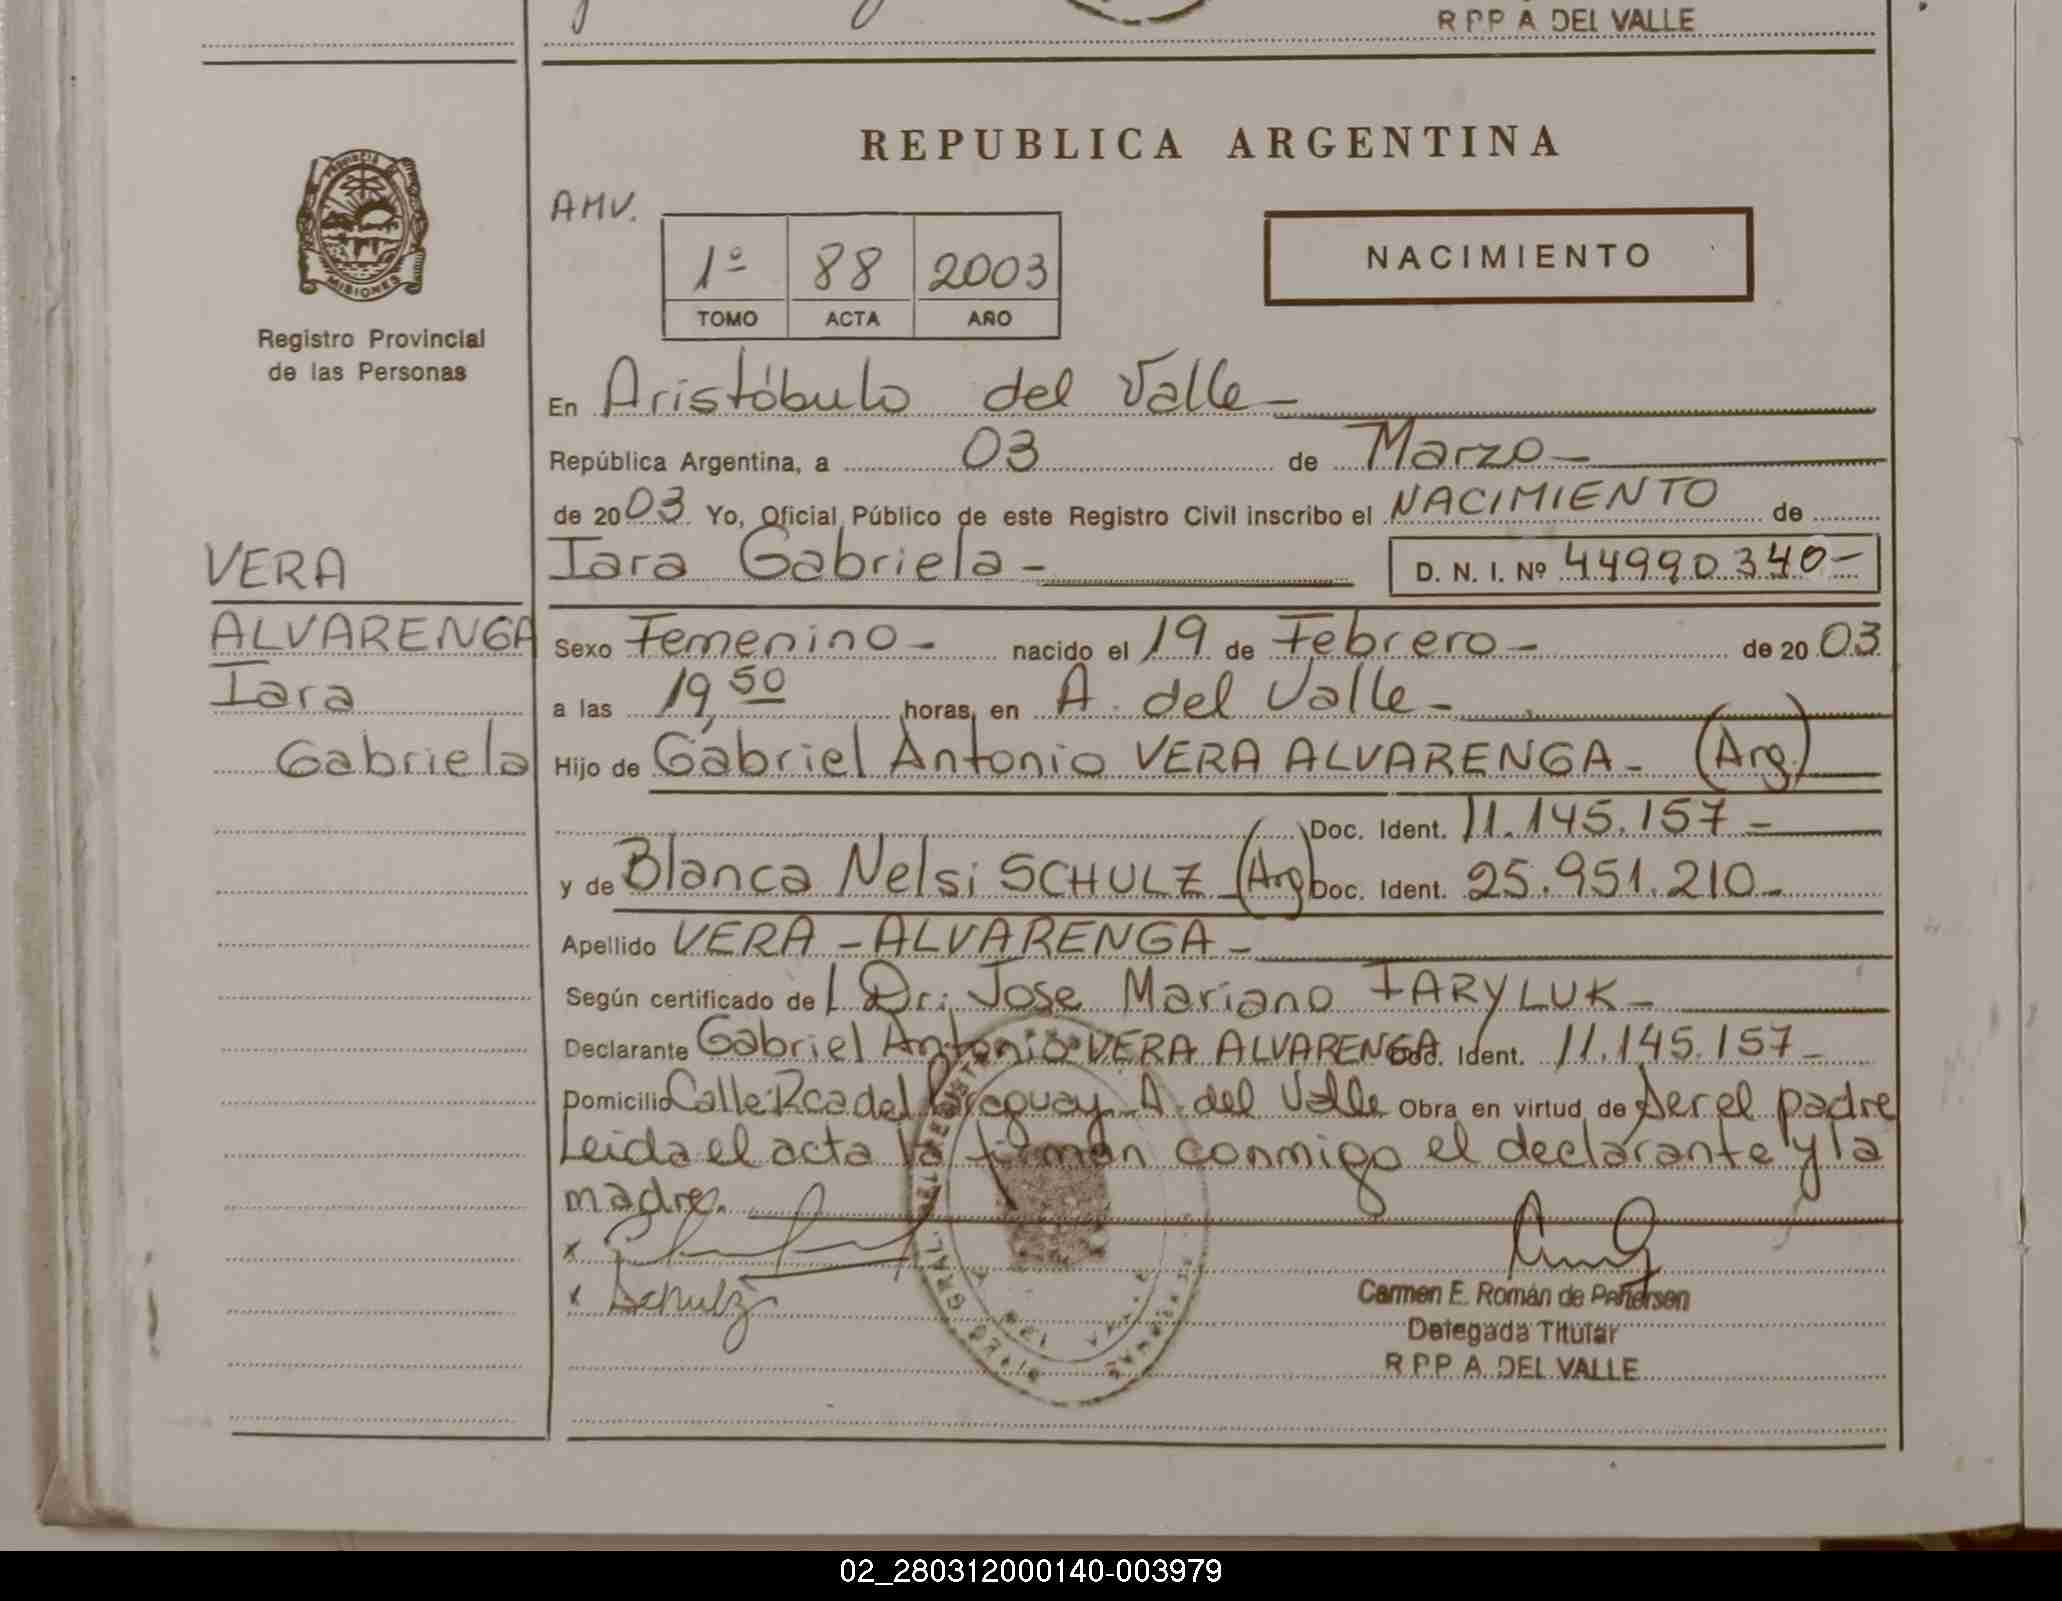 R P P A DEL VALLE
REPUBLICA ARGENTINA
PROVINCIA DE
MISIONES
Registro Provincial
de las Personas
AMV.
1º 88 2003
TOMO ACTA AÑO
NACIMIENTO
En Aristóbulo del Valle
República Argentina, a 03 de Marzo
de 2003 Yo, Oficial Público de este Registro Civil inscribo el NACIMIENTO de
Iara Gabriela - D. N. I. Nº 44990340-
VERA
ALVARENGA
Iara
Gabriela
Sexo Femenino - nacido el 19 de Febrero - de 2003
a las 19,50 horas, en A. del Valle -
Hijo de Gabriel Antonio VERA ALVARENGA - (Arg)
Doc. Ident. 11.145.157 -
y de Blanca Nelsi SCHULZ (Arg) Doc. Ident. 25.951.210 -
Apellido VERA - ALVARENGA -
Según certificado del Dr: Jose Mariano FARYLUK -
Declarante Gabriel Antonio VERA ALVARENGA Doc. Ident. 11.145.157 -
Domicilio Calle: Rca del Paraguay A. del Valle Obra en virtud de ser el padre
Leida el acta la firman conmigo el declarante y la
madre.
x
x Schulz
Carmen E. Román de Petterson
Delegada Titular
R P P A. DEL VALLE
02_280312000140-003979